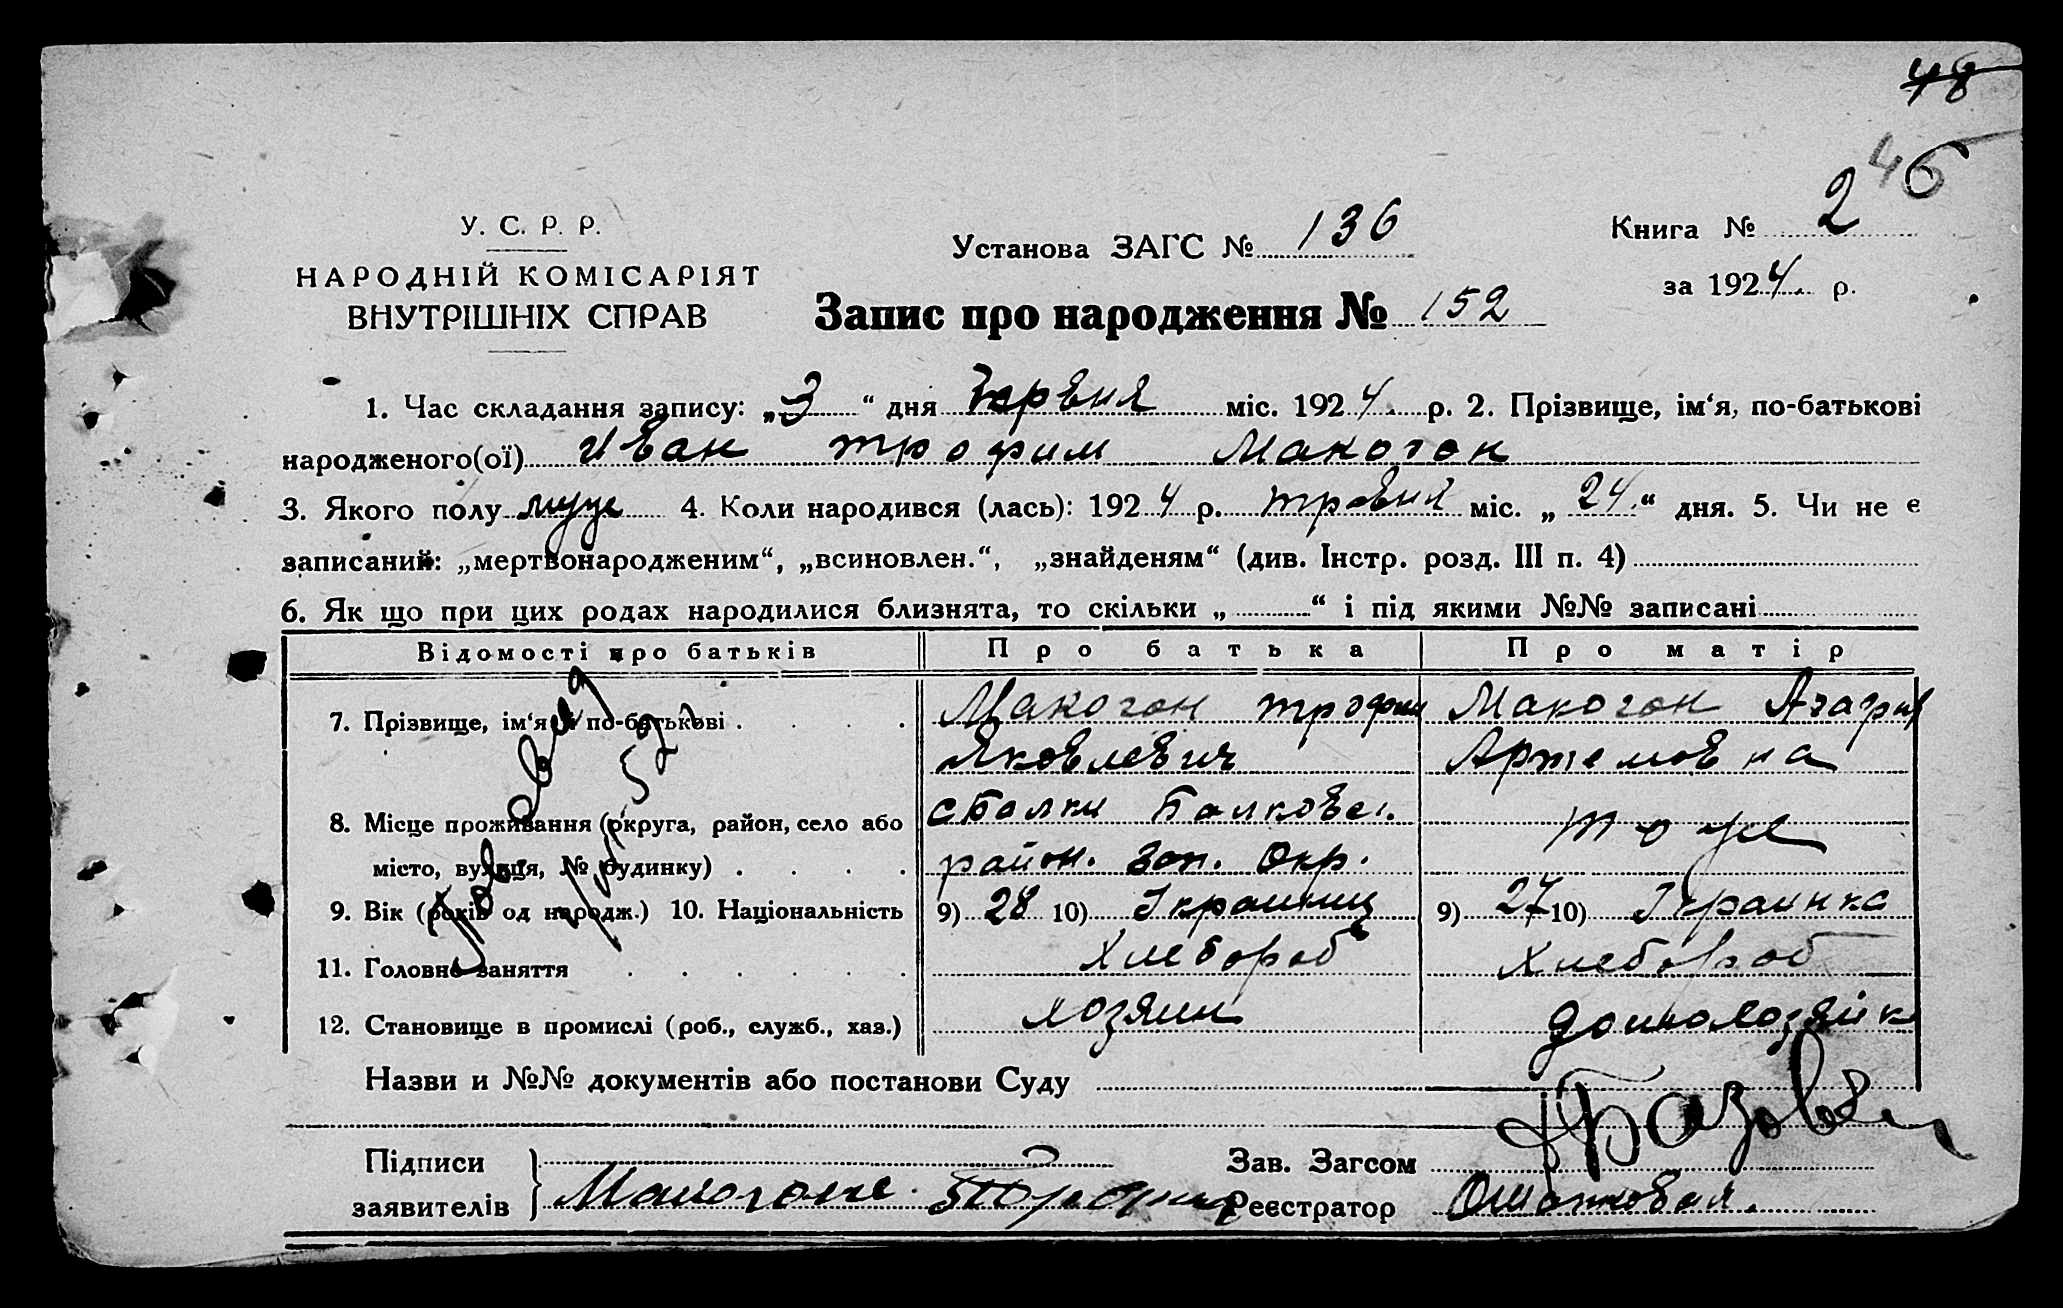 48
46
У. С. Р. Р.
НАРОДНІЙ КОМІСАРІЯТ
ВНУТРІШНІХ СПРАВ
Установа ЗАГС № 136
Книга № 2
за 1924 р.
Запис про народження № 152
1. Час складання запису: „3“ дня Червня міс. 1924. р. 2. Прізвище, ім‘я, по-батькові
народженого(ої) Иван трофим Макогон
3. Якого полу муж 4. Коли народився (лась): 1924 р. травня міс. „24.“ дня. 5. Чи не є
записаний: „мертвонародженим“, „всиновлен.“, „знайденям“ (див. Інстр. розд. III п. 4)
6. Як що при цих родах народилися близнята, то скільки „ “ і під якими №№ записані
Відомості про батьків Про батька Про матір
7. Прізвище, ім‘я й по-батькові Макогон трофим Макогон Агафия
Яковлевич Артемовна
8. Місце проживання (округа, район, село або с Балки Балковс. тоже
місто, вулиця, № будинку) район. Зап. Окр.
9. Вік (років од народж.) 10. Національність 9) 28 10) Украинец 9) 27 10) Украинка
11. Головне заняття Хлебороб Хлебороб
12. Становище в промислі (роб., служб., хаз.) хозяин домохозяйк
Назви и №№ документів або постанови Суду
Підписи Зав. Загсом
заявителів Макогон Реєстратор